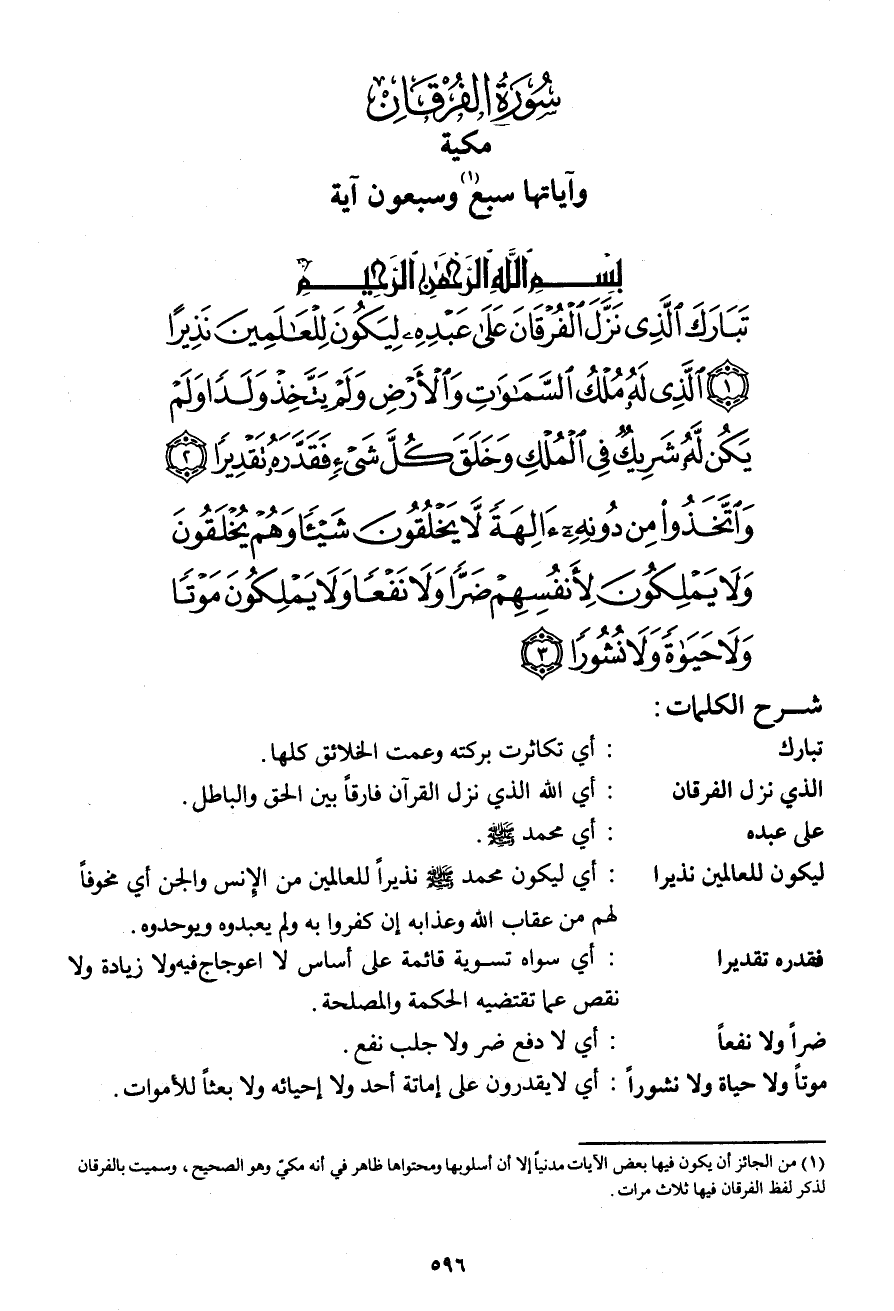 سُورَةُ الفُرْقَانِ
مكية
وآياتها سبع(١) وسبعون آية
بِسْمِ اللَّهِ الرَّحْمَٰنِ الرَّحِيمِ
تَبَارَكَ ٱلَّذِى نَزَّلَ ٱلْفُرْقَانَ عَلَىٰ عَبْدِهِۦ لِيَكُونَ لِلْعَـٰلَمِينَ نَذِيرًا
﴿١﴾ ٱلَّذِى لَهُۥ مُلْكُ ٱلسَّمَـٰوَٰتِ وَٱلْأَرْضِ وَلَمْ يَتَّخِذْ وَلَدًا وَلَمْ
يَكُن لَّهُۥ شَرِيكٌ فِى ٱلْمُلْكِ وَخَلَقَ كُلَّ شَىْءٍ فَقَدَّرَهُۥ تَقْدِيرًا ﴿٢﴾
وَٱتَّخَذُوا۟ مِن دُونِهِۦٓ ءَالِهَةً لَّا يَخْلُقُونَ شَيْـًٔا وَهُمْ يُخْلَقُونَ
وَلَا يَمْلِكُونَ لِأَنفُسِهِمْ ضَرًّا وَلَا نَفْعًا وَلَا يَمْلِكُونَ مَوْتًا
وَلَا حَيَوٰةً وَلَا نُشُورًا ﴿٣﴾
شرح الكلمات :
تبارك : أي تكاثرت بركته وعمت الخلائق كلها .
الذي نزل الفرقان : أي الله الذي نزل القرآن فارقاً بين الحق والباطل .
على عبده : أي محمد ﷺ .
ليكون للعالمين نذيرا : أي ليكون محمد ﷺ نذيراً للعالمين من الإنس والجن أي مخوفاً
لهم من عقاب الله وعذابه إن كفروا به ولم يعبدوه ويوحدوه .
فقدره تقديرا : أي سواه تسوية قائمة على أساس لا اعوجاج فيه ولا زيادة ولا
نقص عما تقتضيه الحكمة والمصلحة .
ضراً ولا نفعاً : أي لا دفع ضر ولا جلب نفع .
موتاً ولا حياة ولا نشوراً : أي لا يقدرون على إماتة أحد ولا إحيائه ولا بعثاً للأموات .
(١) من الجائز أن يكون فيها بعض الآيات مدنياً إلا أن أسلوبها ومحتواها ظاهر في أنه مكيّ وهو الصحيح ، وسميت بالفرقان
لذكر لفظ الفرقان فيها ثلاث مرات .
٥٩٦